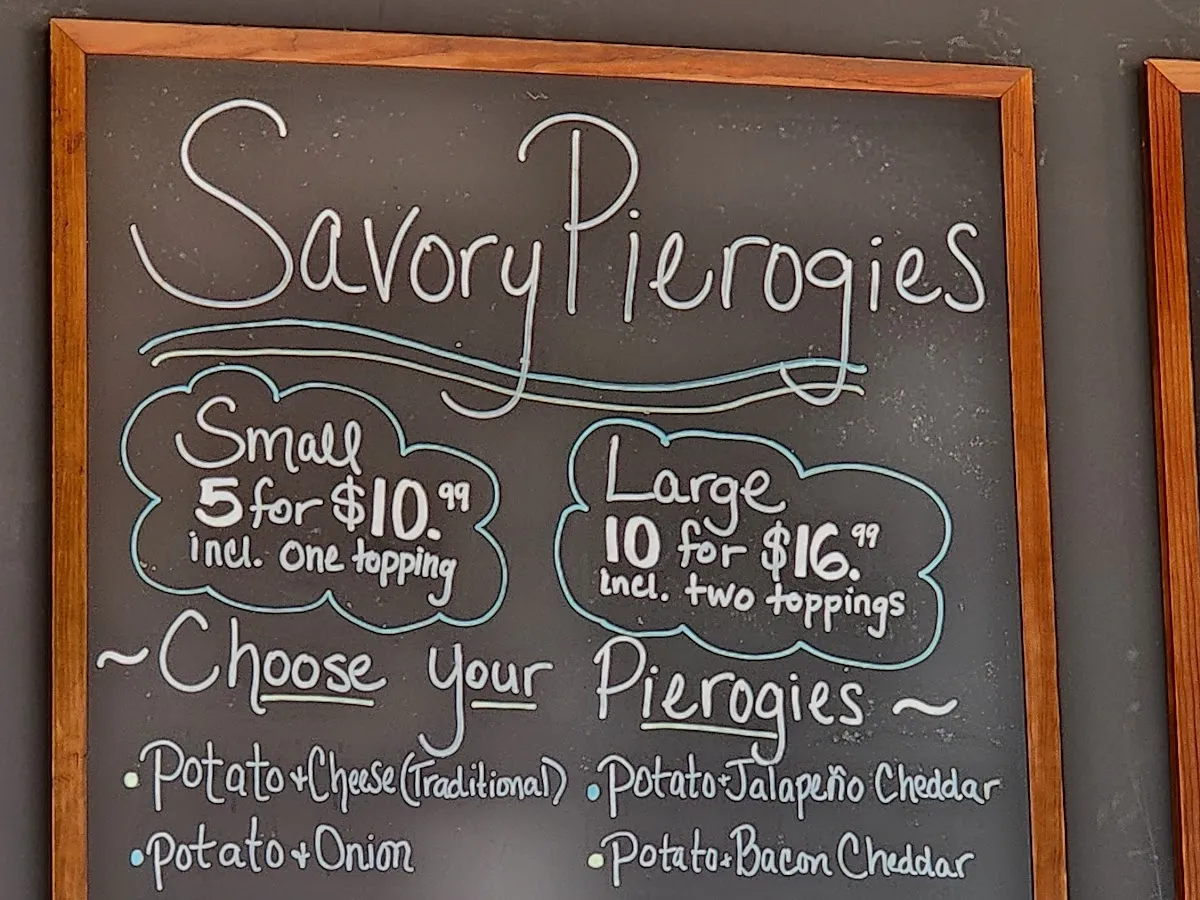 Savory Pierogies
Small
5 for $10.99
incl. one topping
Large
10 for $16.99
incl. two toppings
~Choose your Pierogies~
•Potato+Cheese (Traditional)
•Potato+Onion
•Potato+Jalapeño Cheddar
•Potato+Bacon Cheddar